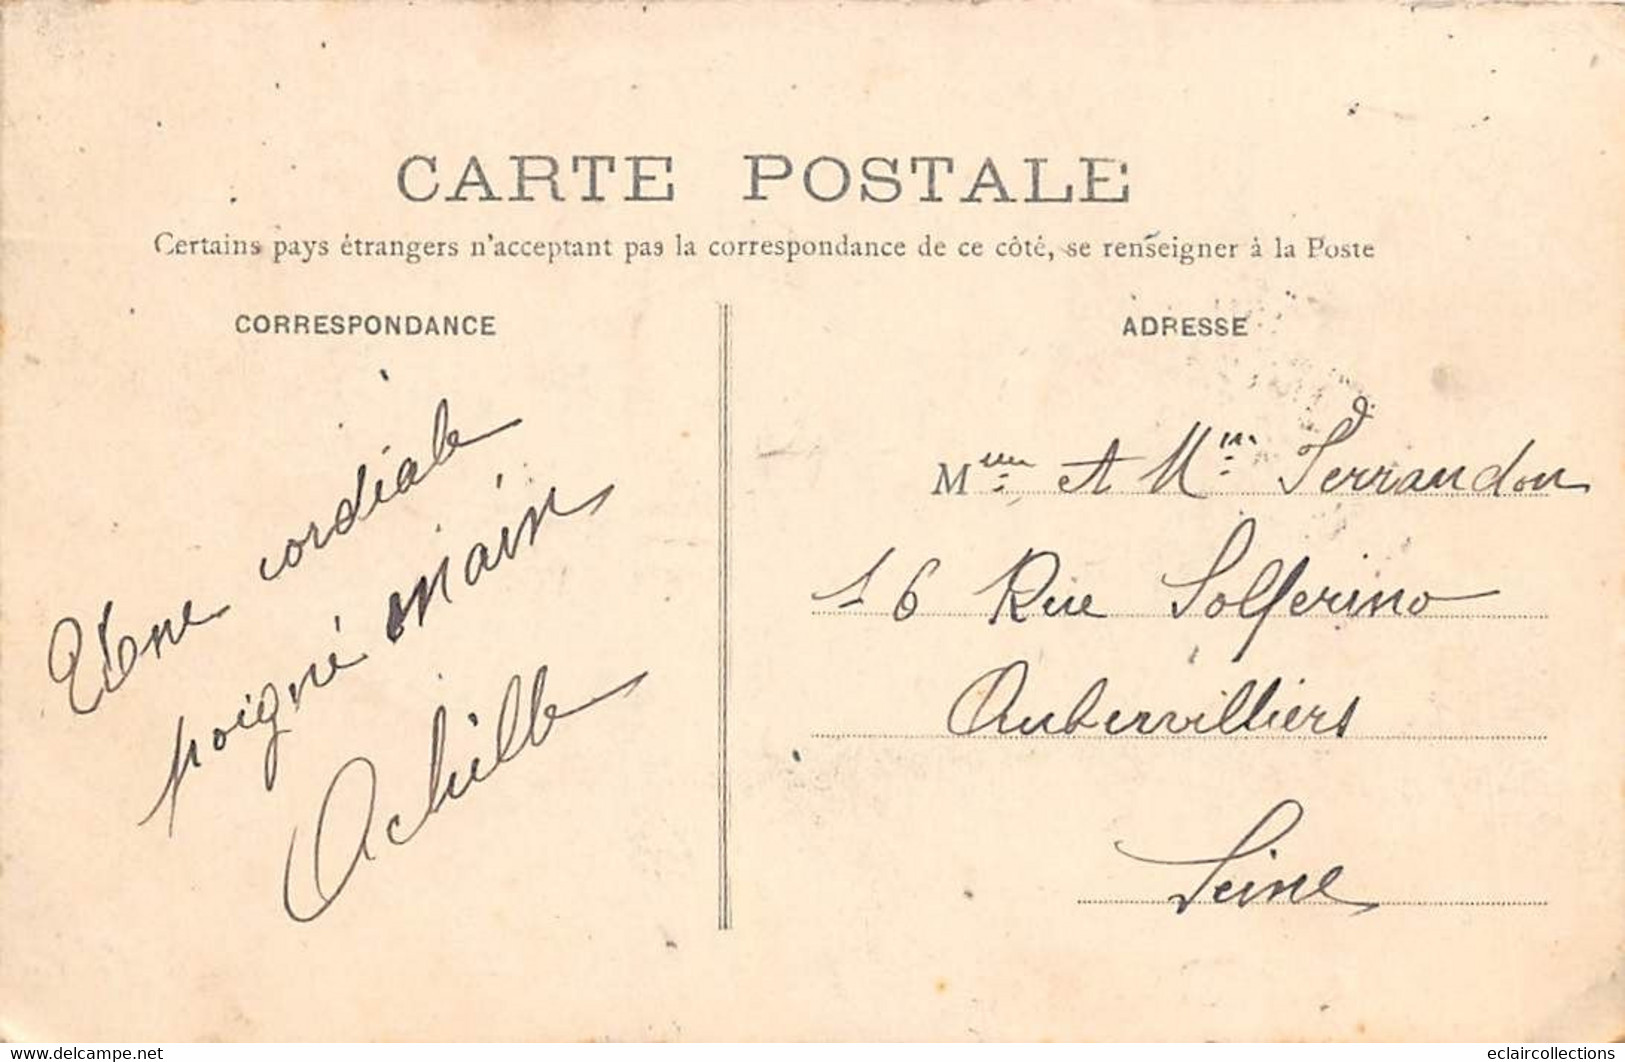 CARTE POSTALE
Certains pays étrangers n'acceptant pas la correspondance de ce côté, se renseigner à la Poste
CORRESPONDANCE
Une cordiale
poigné main
Achille
ADRESSE
M et M Ferrandon
16 Rue Solferino
Aubervilliers
Seine
eclaircollections